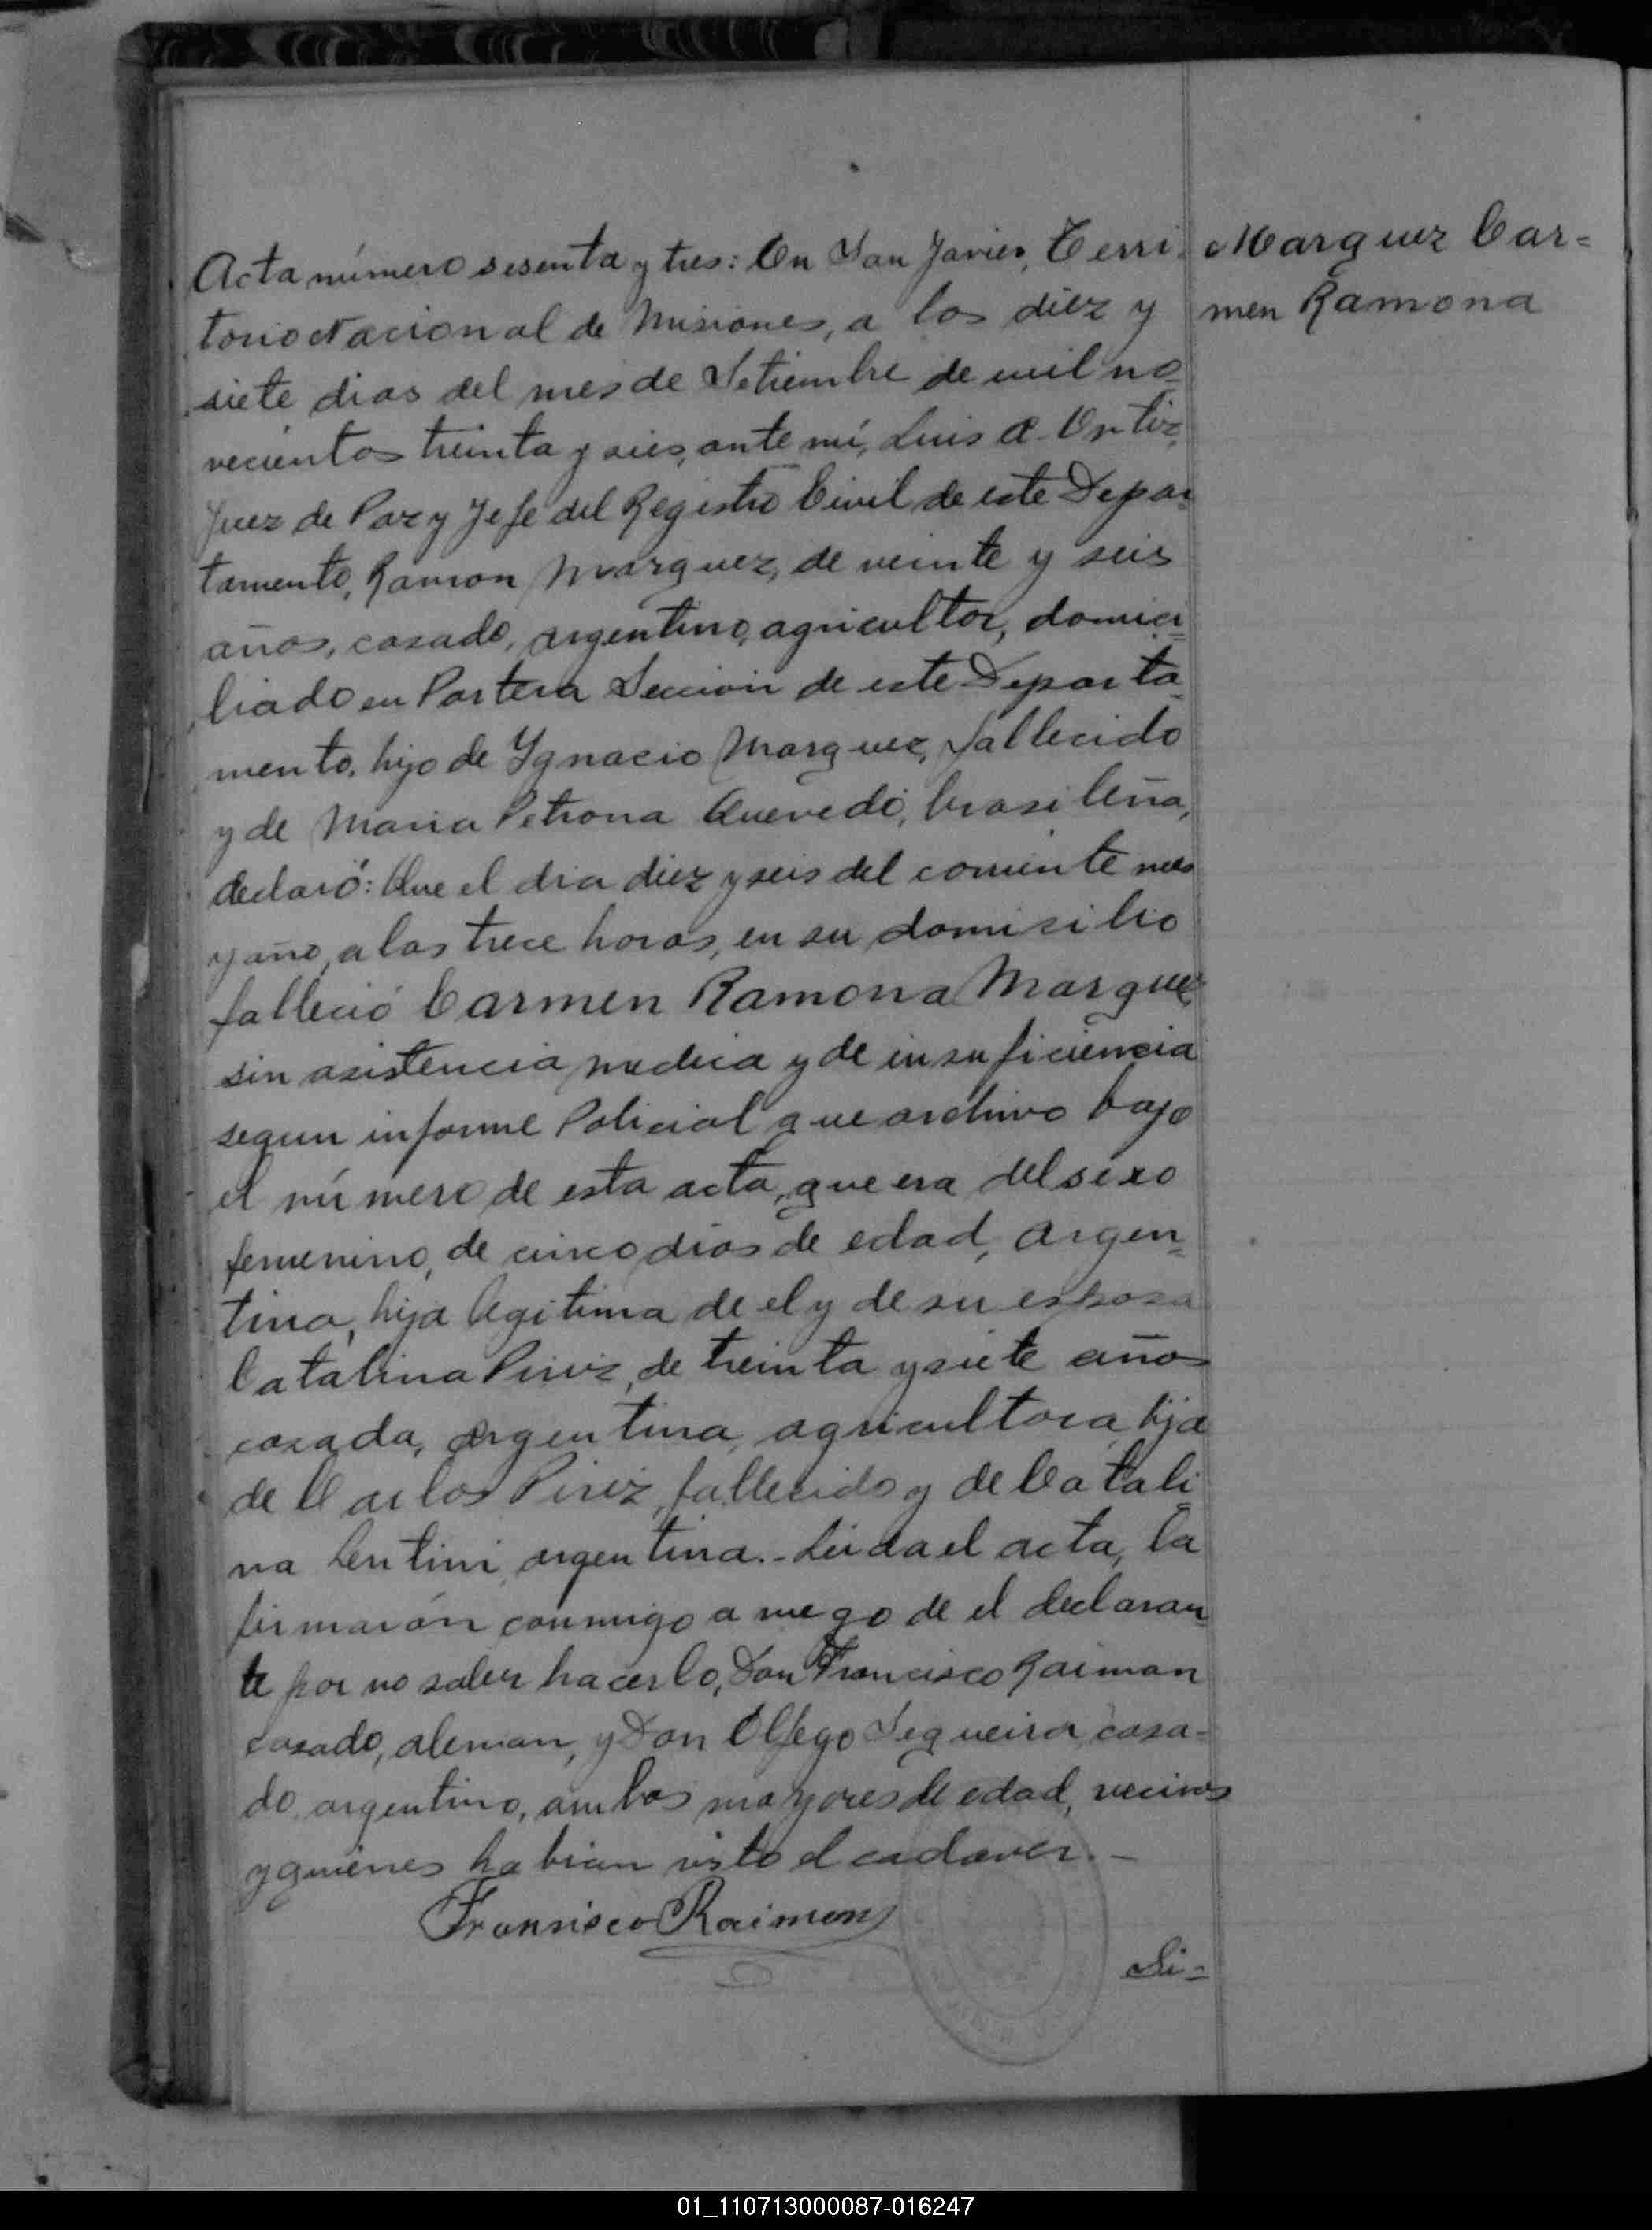 Marquez Car=
men Ramona
Acta número sesenta y tres: En San Javier, Terri-
torio Nacional de Misiones, a los diez y
siete dias del mes de Setiembre de mil no-
vecientos treinta y seis, ante mi, Luis A. Ortiz,
Juez de Paz y Jefe del Registro Civil de este Depar-
tamento, Ramon Marquez, de veinte y seis
años, casado, argentino, agricultor, domici-
liado en Portera Sección de este Departa-
mento, hijo de Ygnacio Marquez, fallecido
y de Maria Petrona Quevedo, brasileña,
declaró: Que el dia diez y seis del corriente mes
y año, a las trece horas, en su domisilio
falleció Carmen Ramona Marquez
sin asistencia medica y de insuficiencia
segun informe Policial que archivo bajo
el número de esta acta, que era del sexo
femenino, de cinco dias de edad, argen-
tina, hija legitima de el y de su esposa
Catalina Piriz, de treinta y siete años
casada, argentina, agricultora, hija
de Carlos Piriz, fallecido y de Catali-
na Lentini, argentina.- Leida el acta, la
firmarón conmigo a ruego de el declaran-
te por no saber hacerlo, Don Francisco Raiman
casado, aleman, y Don Elfego Sequeira, casa-
do, argentino, ambos mayores de edad, vecinos
y quienes habian visto el cadaver.-
Fransisco Raimon
Si-
01_110713000087-016247